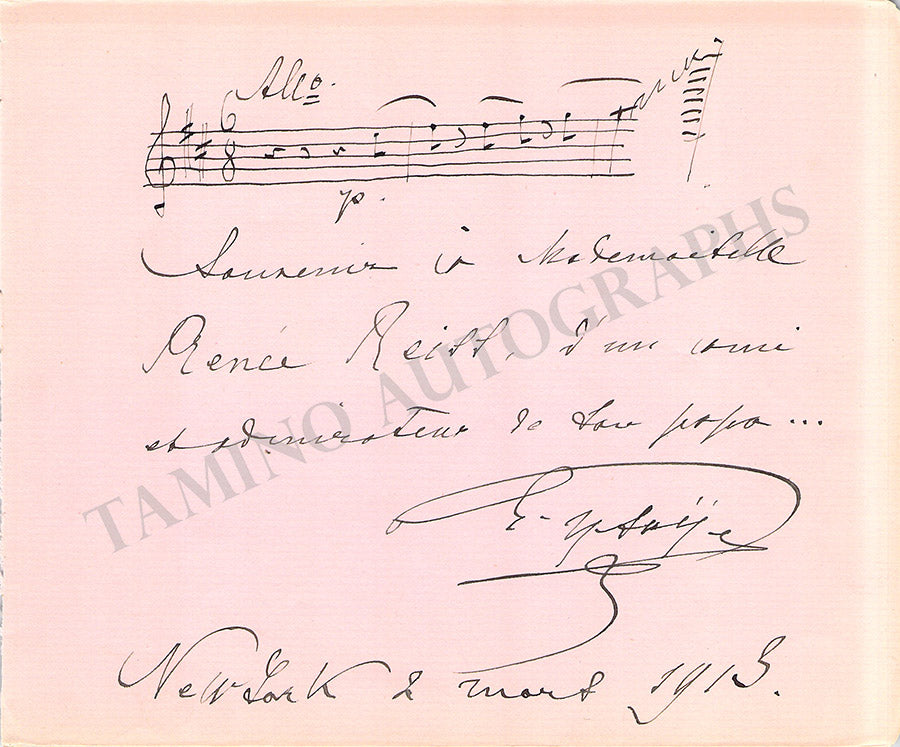 Allo.
6
8
p.
Souvenir à Mademoiselle
Renée Reiss, d'un ami
et admirateur de son papa...
E. Ysaÿe
New York 2 mars 1913.
TAMINO AUTOGRAPHS